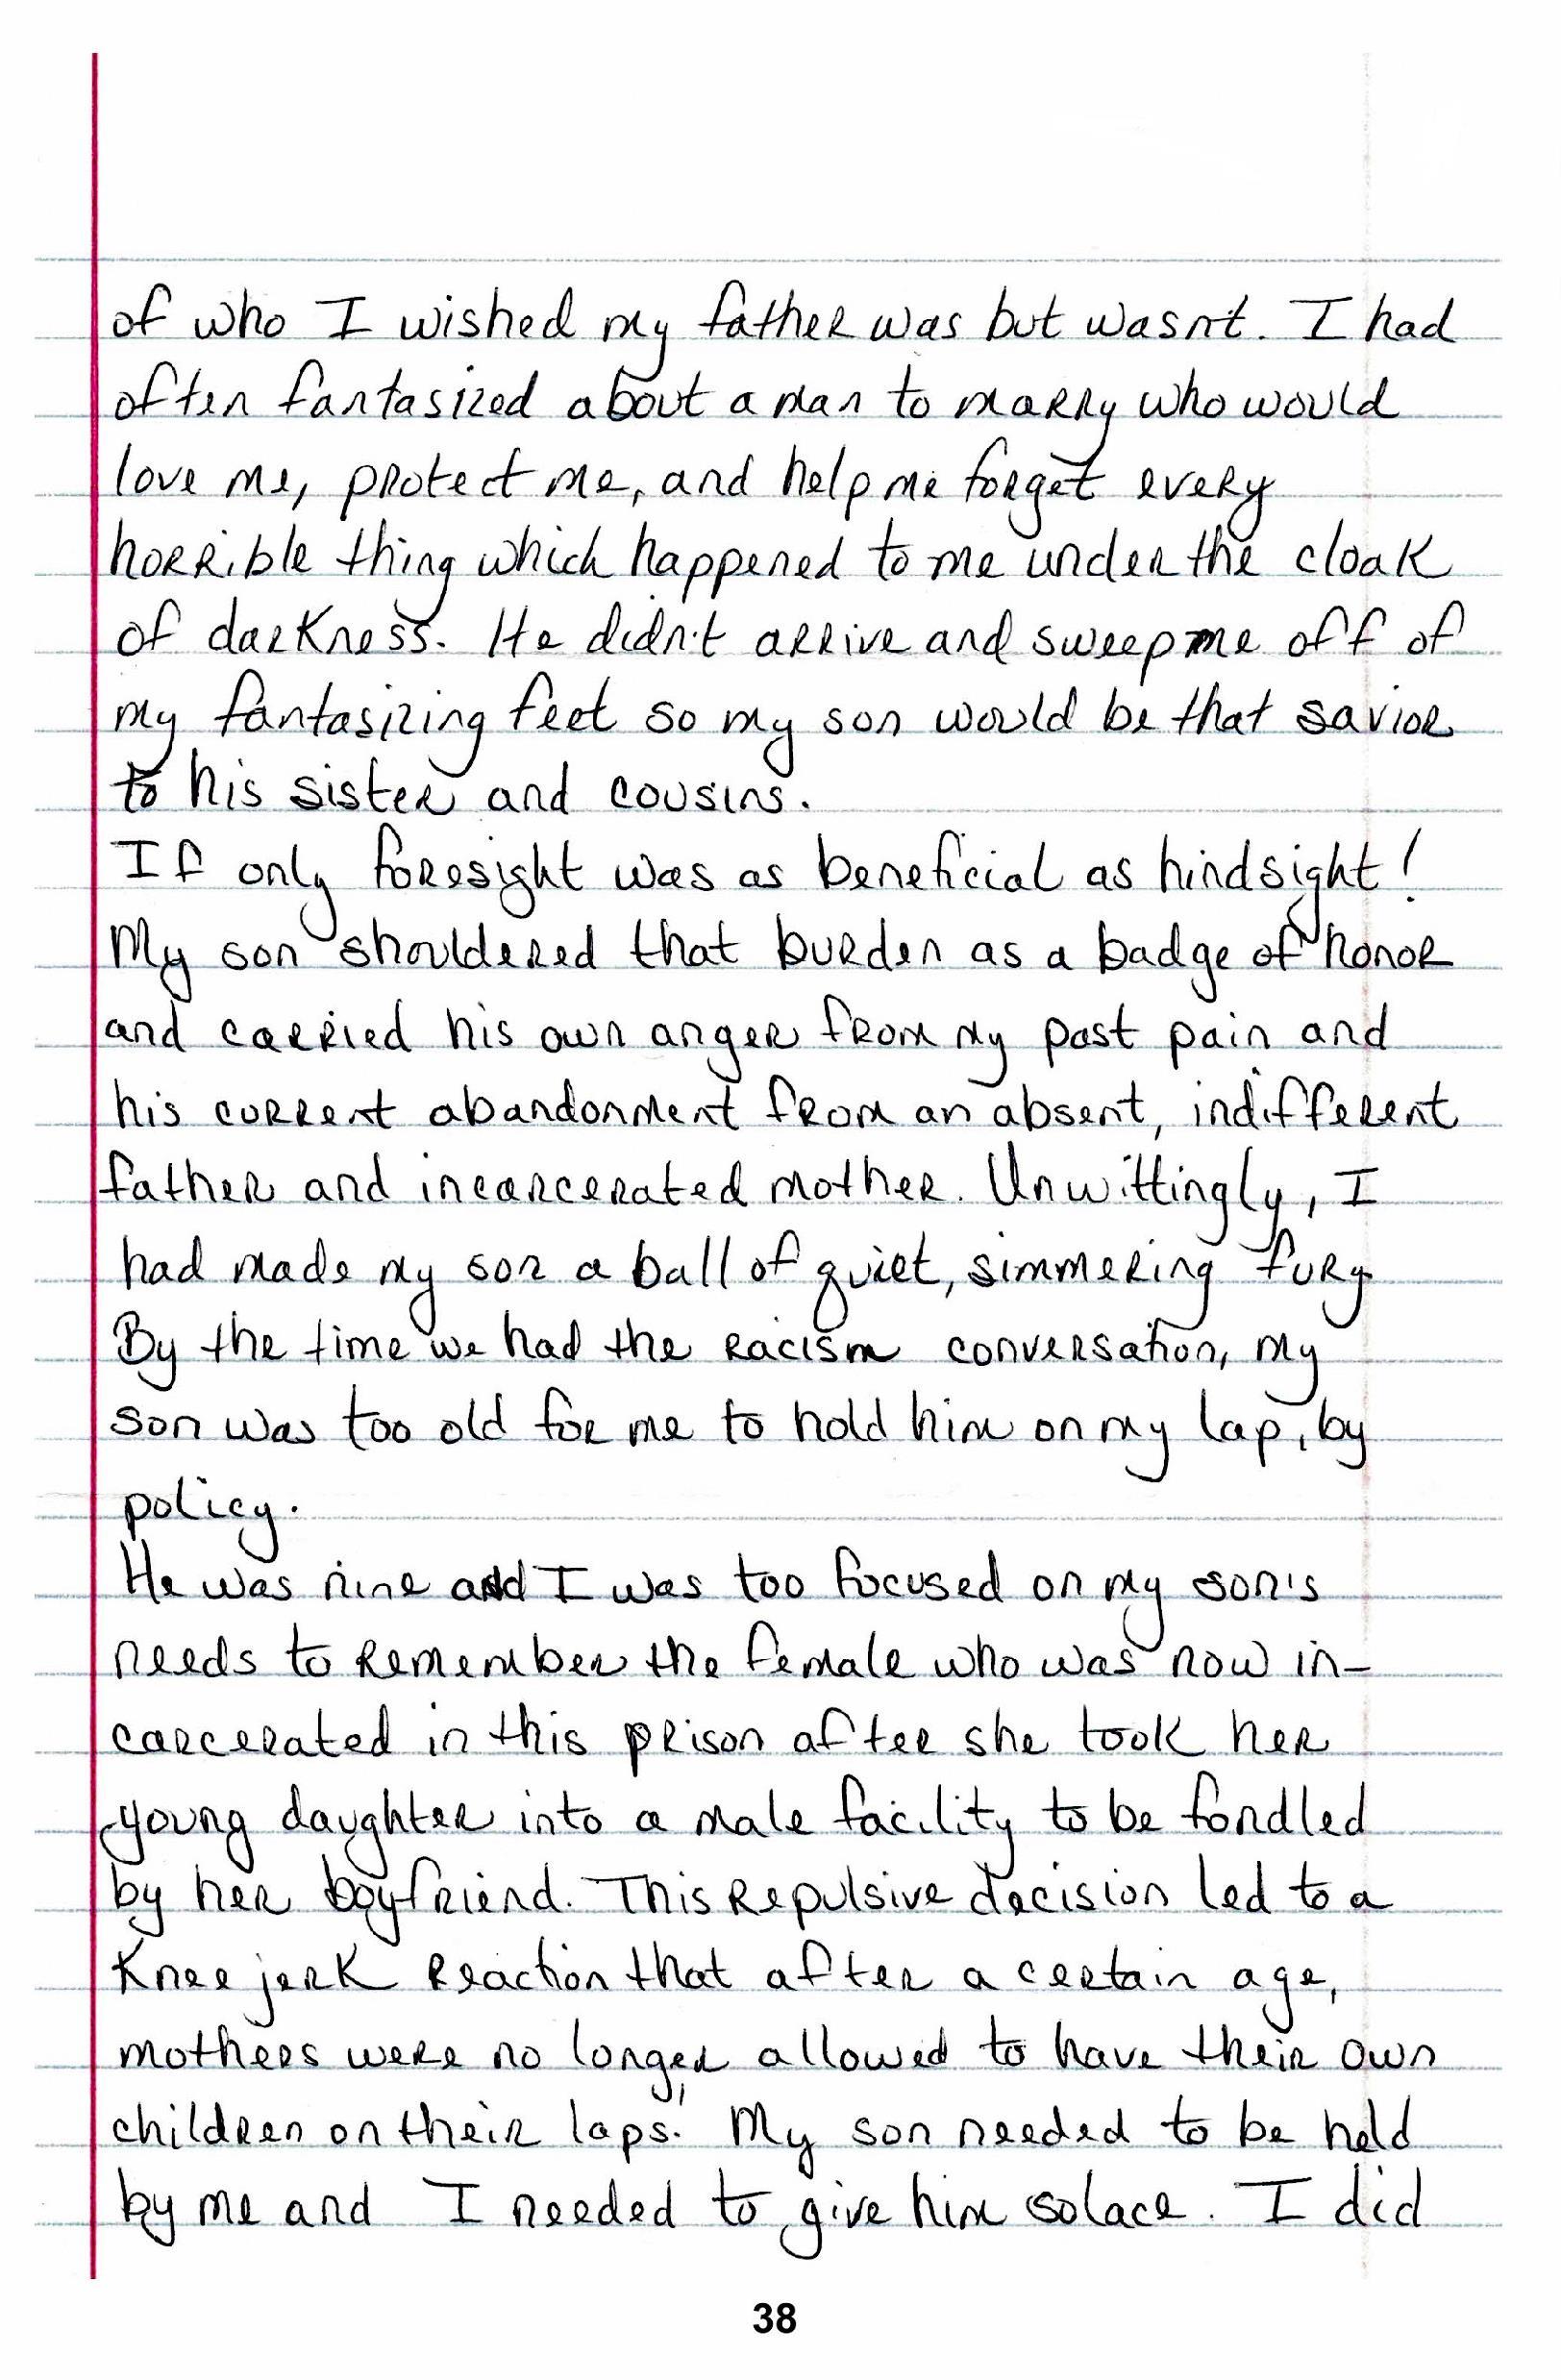 of who I wished my father was but wasnt. I had
often fantasized about a man to marry who would
love me, protect me, and help me forget every
horrible thing which happened to me under the cloak
of darkness. He didn't arrive and sweep me off of
my fantasizing feet so my son would be that savior
to his sister and cousins.
If only foresight was as beneficial as hindsight!
My son shouldered that burden as a badge of honor
and carried his own anger from my past pain and
his current abandonment from an absent, indifferent
father and incarcerated mother. Unwittingly, I
had made my son a ball of quiet, simmering fury.
By the time we had the racism conversation, my
son was too old for me to hold him on my lap, by
policy.
He was nine and I was too focused on my son's
needs to remember the female who was now in-
carcerated in this prison after she took her
young daughter into a male facility to be fondled
by her boyfriend. This repulsive decision led to a
knee jerk reaction that after a certain age,
mothers were no longer allowed to have their own
children on their laps. My son needed to be held
by me and I needed to give him solace. I did
38